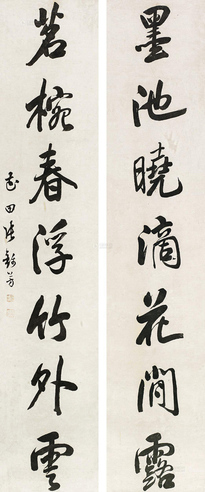 墨池曉滴花間露
茗椀春浮竹外雲